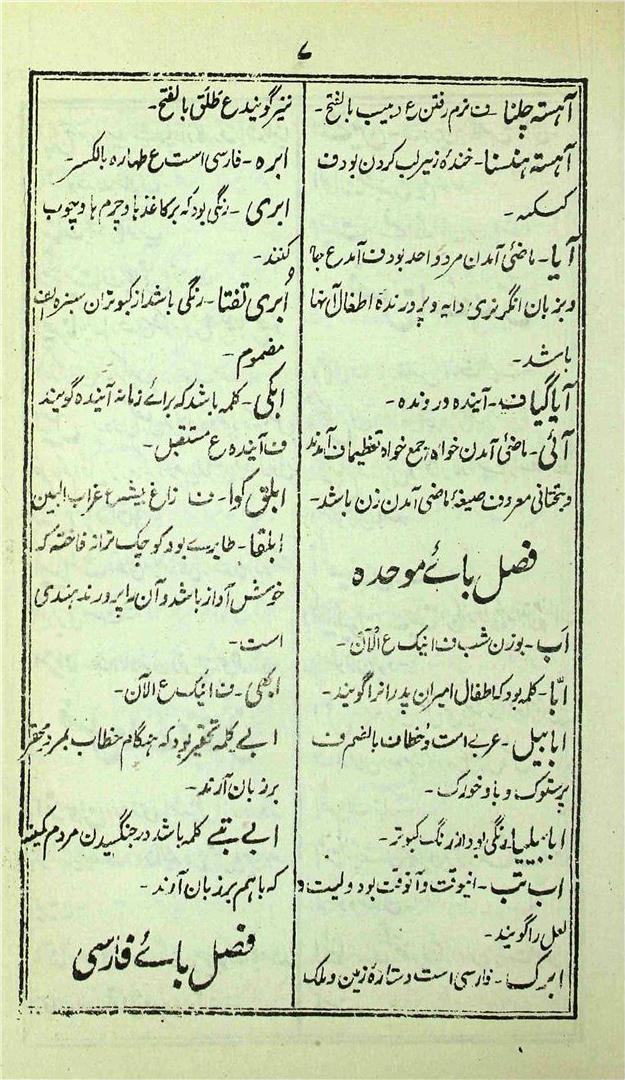 ۷
آہستہ چلنا ف نرم رفتن ع دبیب بالفتح۔
آہستہ ہنسنا۔ خندۂ زیر لب کردن بود ف
آیا۔ ماضیٔ آمدن مرد واحد بود ف آمد ع جا
و بزبان انگریزی دایہ و پرورندۂ اطفال آنہا
باشد۔
آیا گیا ف۔ آیندہ و روندہ۔
آئی۔ ماضیٔ آمدن خواہ جمع خواہ تعظیما ف آمدند
و بتحتانی معروف صیغۂ ماضی آمدن زن باشد۔
فصل بائے موحدہ
اَب۔ بوزن شب ف اینک ع الآن۔
ابّا۔ کلمہ بود کہ اطفال امیران پدر را گویند۔
ابابیل۔ عربے است و خطاف بالضم ف
پرستوک و باد خورک۔
ابابیلیا۔ رنگی بود از رنگ کبوتر۔
اب تب۔ اینوقت و آنوقت بود و لیت و
لعل را گویند۔
ابرک۔ فارسی است و ستارۂ زمین و ملک
نیز گویند ع طلق بالفتح۔
ابرہ۔ فارسی است ع ظہارہ بالکسر۔
ابری۔ رنگی بود کہ بر کاغذ ہا و چرم ہا و چوب
کنند۔
اُبری تفتا۔ رنگی باشد از کبوتران سبزہ الف
مضموم۔
ابکی۔ کلمہ باشد کہ برائے زمانہ آیندہ گویند
ف آیندہ ع مستقبل۔
ابلق کوا۔ ف زاغ پیشہ ع غراب البین
ابلقا۔ طایرے بود کوچک تر از فاختہ کہ
خوش آواز باشد و آن را پرورند ہندی
است۔
ابھی۔ ف اینک ع الآن۔
ابے کلمہ تحقیر بود کہ ہنگام خطاب بمرد محقر
بر زبان آرند۔
ابے تبے کلمہ باشد در جنگیدن مردم کمینہ
کہ باہم بر زبان آرند۔
فصل بائے فارسی